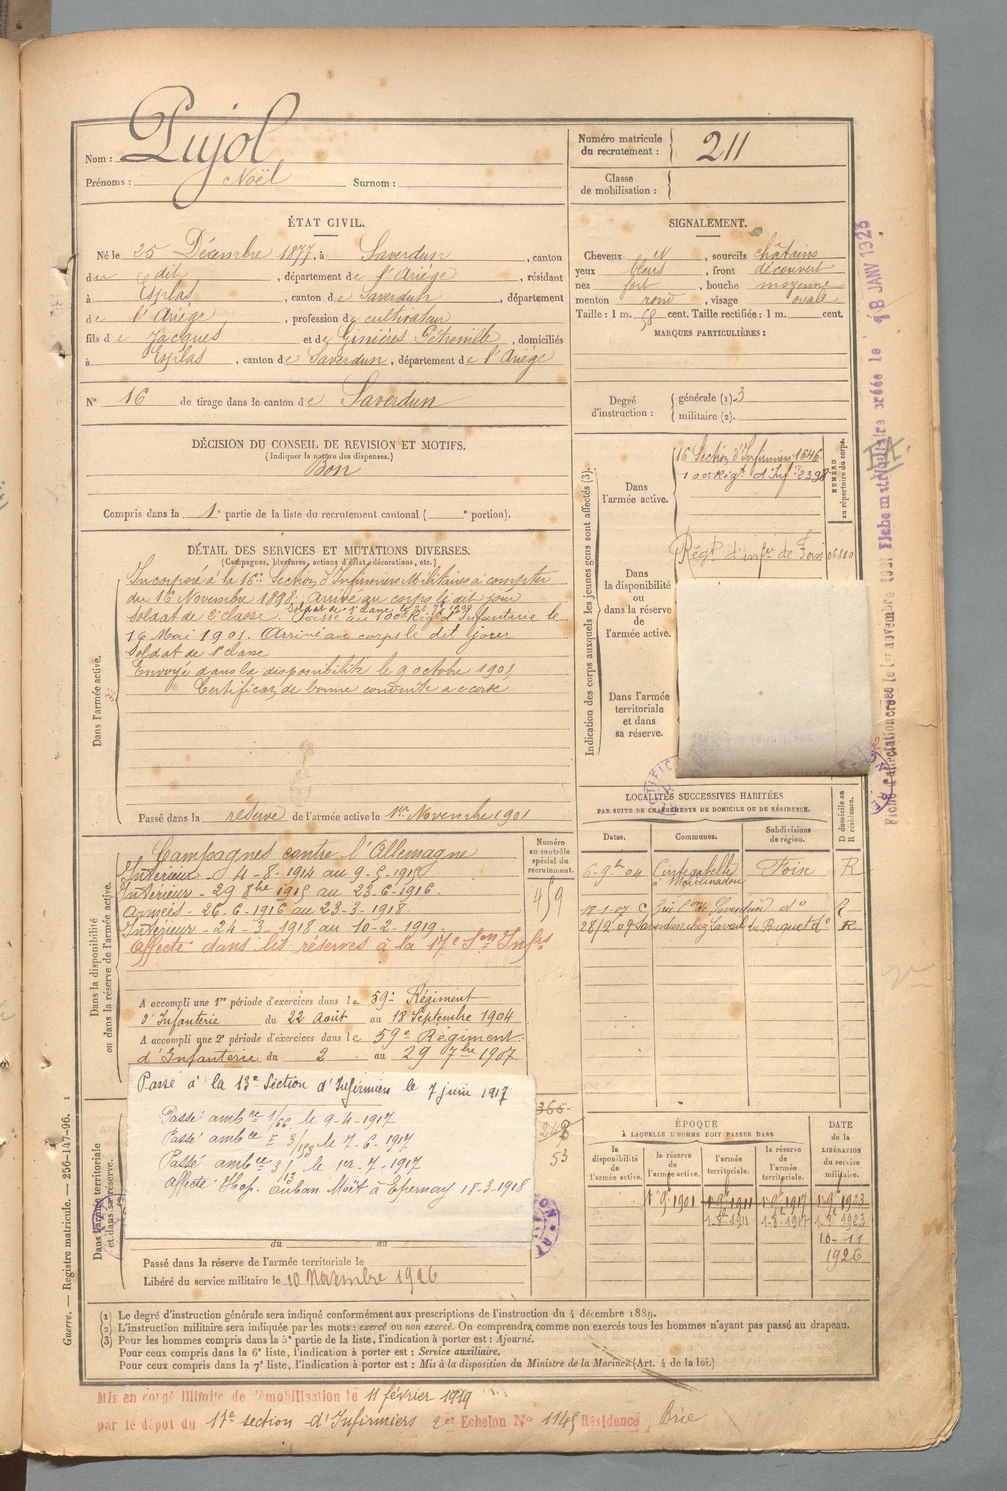 Nom : Pujol
Prénoms : Noël Surnom :
Numéro matricule du recrutement : 211
Classe de mobilisation :
ÉTAT CIVIL.
Né le 25 Décembre 1877, à Saverdun, canton
du dit, département de l'Ariège, résidant
à Esplas, canton de Saverdun, département
de l'Ariège, profession de cultivateur
fils de Jacques et de Giniéres Pétronille, domiciliés
à Esplas, canton de Saverdun, département de l'Ariège
N° 16 de tirage dans le canton de Saverdun
SIGNALEMENT.
Cheveux et, sourcils châtains
yeux bleus, front découvert
nez fort, bouche moyenne
menton rond, visage ovale
Taille : 1 m. 58 cent. Taille rectifiée : 1 m. cent.
MARQUES PARTICULIÈRES :
Degré d'instruction : générale (1). 3
militaire (2).
DÉCISION DU CONSEIL DE REVISION ET MOTIFS.
(Indiquer la nature des dispenses.)
Bon
Compris dans la 1e partie de la liste du recrutement cantonal ( e portion).
DÉTAIL DES SERVICES ET MUTATIONS DIVERSES.
(Campagnes, blessures, actions d'éclat, décorations, etc.)
Dans l'armée active.
Incorporé à la 16e Section d'Infirmiers Militaires à compter
du 16 Novembre 1898. Arrivé au corps le dit jour
Soldat de 2e classe. Soldat de 1e classe le
Passé au 100e Régt d'Infanterie le
16 Mai 1901. Arrivé au corps le dit jour
Soldat de 1e classe
Envoyé dans la disponibilité le 9 octobre 1901
Certificat de bonne conduite accordé
Passé dans la réserve de l'armée active le 1er Novembre 1901
Indication des corps auxquels les jeunes gens sont affectés (3).
NUMÉRO au répertoire du corps.
Dans l'armée active.
16 Section d'Infirmiers 1646
100e Régt d'Infie 2398
Dans la disponibilité ou dans la réserve de l'armée active.
Régt d'infie de Foix 06100
Dans l'armée territoriale et dans sa réserve.
LOCALITÉS SUCCESSIVES HABITÉES
PAR SUITE DE CHANGEMENTS DE DOMICILE OU DE RÉSIDENCE.
Dates. Communes. Subdivisions de région. D domicile ou R résidence.
6-9bre 04 Cintegabelle Foix R
18-1-07 Saverdun do R
28/9 09 Saverdun chez Lavail do R
Dans la disponibilité ou dans la réserve de l'armée active.
Numéro au contrôle spécial du recrutement.
459
Campagnes contre l'Allemagne
Intérieur - 4-8-1914 au 9-5-1915
Intérieur - 29 8bre 1915 au 23-6-1916
Armées - 26-6-1916 au 23-3-1918
Intérieur - 24-3-1918 au 10-2-1919
Affecté dans les réserves à la 17e Son Infrs
A accompli une 1re période d'exercices dans le 59e Régiment
d'Infanterie du 22 août au 18 Septembre 1904
A accompli une 2e période d'exercices dans le 59e Régiment
d'Infanterie du 2 au 29 7bre 1907
Dans l'armée territoriale et dans sa réserve.
Passé à la 13e Section d'Infirmiers le 7 juin 1917
Passé ambce 1/66 le 9-4-1917
Passé ambce 3/153 le 7-6-1917
Passé ambce 3/13 le 1er-7-1917
Affecté Hop. Auban Moët à Epernay 18-3-1918
365
248
53
du au
Passé dans la réserve de l'armée territoriale le
Libéré du service militaire le 10 Novembre 1926
ÉPOQUE
À LAQUELLE L'HOMME DOIT PASSER DANS
la disponibilité de l'armée active.
la réserve de l'armée active.
l'armée territoriale.
la réserve de l'armée territoriale.
DATE de la LIBÉRATION du service militaire.
1r 9e 1901 1r 9e 1911 1r 9e 1917 1r 9e 1923
1-8-1911 1-8-1917 1-8-1923
10-11
1926
(1) Le degré d'instruction générale sera indiqué conformément aux prescriptions de l'instruction du 4 décembre 1889.
(2) L'instruction militaire sera indiquée par les mots : exercé ou non exercé. On comprendra comme non exercés tous les hommes n'ayant pas passé au drapeau.
(3) Pour les hommes compris dans la 5e partie de la liste, l'indication à porter est : Ajourné.
Pour ceux compris dans la 6e liste, l'indication à porter est : Service auxiliaire.
Pour ceux compris dans la 7e liste, l'indication à porter est : Mis à la disposition du Ministre de la Marine. (Art. 4 de la loi.)
Mis en congé illimité de démobilisation le 11 février 1919
par le dépôt du 17e section d'Infirmiers 2er Echelon N° 1145 Résidence Brie
Guerre. — Registre matricule. — 256-147-96. 1
Fiche matriculaire créée le 18 JANV 1928
Fiche d'affectation créée le 1er novembre 1921